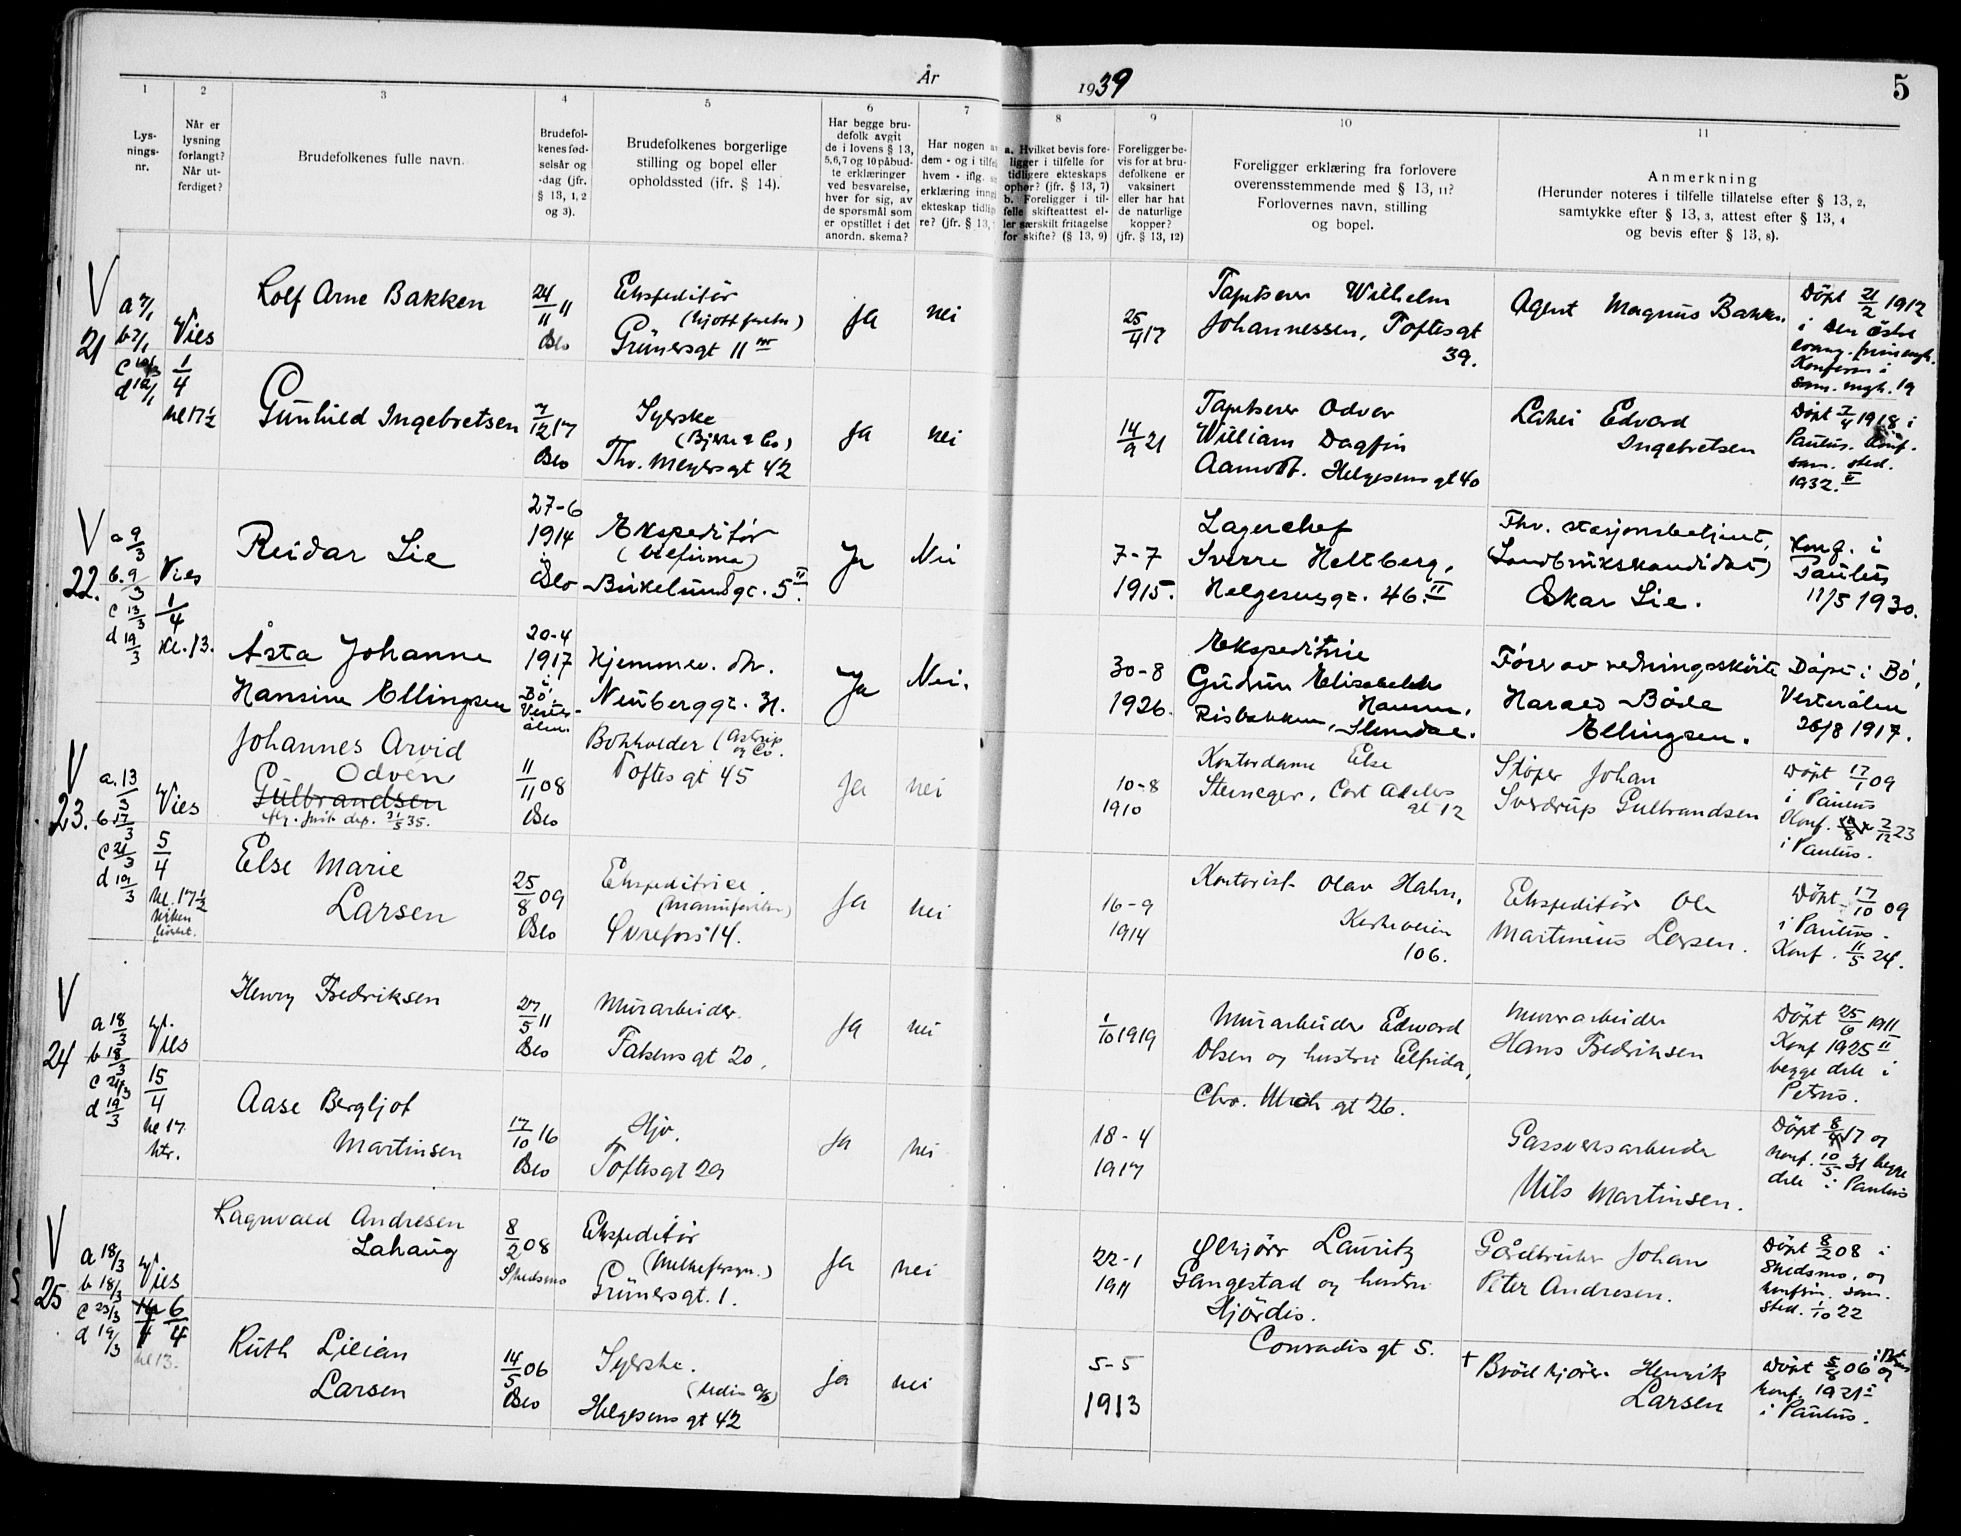 År 1939
5
1 2 3 4 5 6 7 8 9 10 11
Lys-
nings-
nr.
Når er
lysning
forlangt?
Når ut-
ferdiget?
Brudefolkenes fulle navn.
Brudefol-
kenes fød-
selsår og
-dag (jfr.
§ 13, 1, 2
og 3).
Brudefolkenes borgerlige
stilling og bopel eller
opholdssted (ifr. § 14).
Har begge bru-
defolk avgit
de i lovens § 13,
5,6,7 og 10 påbud-
te erklæringer
ved besvarelse,
hver for sig, av
de spørsmål som
er opstillet i det
anordn. skema?
Har nogen
dem - og i tilfe
hvem - iflg.
erklæring inng
ekteskap tidlig
re? (jfr. § 13,
a. Hvilket bevis fore-
ligger i tilfelle for
tidligere ekteskaps
ophør? (jfr. § 13, 7)
b. Foreligger i til-
felle skifteattest el-
ler særskilt fritagelse
for skifte? (§ 13, 9)
Foreligger be-
vis for at bru-
defolkene er
vaksinert
eller har hat
de naturlige
kopper?
(jfr. § 13, 12)
Foreligger erklæring fra forlovere
overensstemmende med § 13, 11?
Forlovernes navn, stilling
og bopel.
Anmerkning
(Herunder noteres i tilfelle tillatelse efter § 13, 2,
samtykke efter § 13, 3, attest efter § 13, 4
og bevis efter § 13, 8).
V
21
Vies
1/4
kl 17 1/2
Rolf Arne Bakken
24/11 11
Oslo
Ekspeditør
Grünersgt 11
Ja
nei
25/4 17
Tapetserer Wilhelm
Johannessen, Toftesgt
39.
Agent Magnus Bakken
Döpt 21/2 1912
i Den østre
Konferm i
sam. mgh. 19
Gunhild Ingebretsen
7/12 17
Oslo
Syerske
(Bjerke & Co)
Thv. Meyersgt 42
Ja
nei
14/9 21
Tapetserer Odvar
William Dagfin
Aamodt. Helgesensgt 40
Lakei Edvard
Ingebretsen
Döpt 7/4 1918 i
Paulus. Konf.
sam. sted.
1932. II
V
22.
a 9/3
b. 9/3
c 13/3
d 19/3
Vies
1/4
Kl. 13.
Reidar Lie
27-6
1914
i
Oslo
Ekspeditør
Birkelundgt. 5 II.
Ja
Nei
7-7
1915.
Lagerchef
Sverre Heltberg,
Helgesensgt. 46. II
Thv. stasjonsbetjent,
(Landbrukskandidat)
Oskar Lie.
Konf. i
Paulus
11/5 1930.
Åsta Johanne
Hansine Ellingsen
20-4
1917
i
Bö,
Vester-
ålen
Hjemmev. dtr.
Neuberggt. 31.
Ja
Nei.
30-8
1926.
Ekspeditrise
Gudrun Elisabeth
Hansen,
Risbakken, Slemdal.
Förer av redningsskøite
Harald Bøde
Ellingsen.
Döpt i Bö,
Vesterålen
26/8 1917.
V
23.
a. 13/3
b 17/3
c 21/3
d 19/3
Vies
5/4
kl. 17 1/2
Johannes Arvid
Odven
Gulbrandsen
flg. just. dep. 31/5 35.
11/11 08
Oslo
Bokholder (Astrup
og Co.
Toftes gt 45
Ja
nei
10-8
1910
Kontordame Else
Steneger, Cort Adelers
gt 12
Støper Johan
Sverdrup Gulbrandsen
Döpt 17/1 09
i Paulus
Konf. 2/12 23
i Paulus.
Else Marie
Larsen
25/8 09
Oslo
Ekspeditrice.
Øvrefoss 14.
Ja
nei
16-9
1914
Kontorist Olav Hahn,
Kirkeveien
106.
Ekspeditør Ole
Martinius Larsen.
Döpt 17/10 09
i Paulus.
Konf. 11/5 24.
V
24
a 18/3
b 18/3
c 21/3
d 19/3
Vies
15/4
kl 17
Henry Fredriksen
27/5 11
Oslo
Murarbeider.
Falsensgt 20.
Ja
nei
1/10 1919
Murarbeider Edward
Olsen og hustru Elfrida,
Chr. Mich gt 26.
Murarbeider
Hans Fredriksen
Döpt 25/6 1911
Konf 1925 II
begge dele i
Petrus.
Aase Bergljot
Martinsen
17/10 16
Oslo
Hjv.
Toftesgt 29
Ja
nei
18-4
1917
Gassverksarbeider
Nils Martinsen.
Döpt 8/4 17 og
konf. 10/5 31 begge
dele i Paulus
V
25
a 18/3
b 18/3
c 23/3
d 19/3
Vies
6/4
kl 13.
Ragnvald Andresen
Lahaug
8/2 08
Skedsmo
Ekspeditør
(Melkeforsyn.)
Grünersgt. 1.
Ja
nei
22-1
1911
Lauritz
Gangestad og hustru
Hjördis.
Conradis gt 5.
Gårdbruker Johan
Peter Andresen.
Döpt 8/2 08 i
Skedsmo, og
konfirm. sam.
sted. 1/10 22
Ruth Lilian
Larsen
14/5 06
Oslo
Syerske.
Helgesens gt 42
Ja
nei
5-5
1913
+ Brödkjører Henrik
Larsen
Döpt 5/8 06 og
konf. 1921 I
i Paulus.